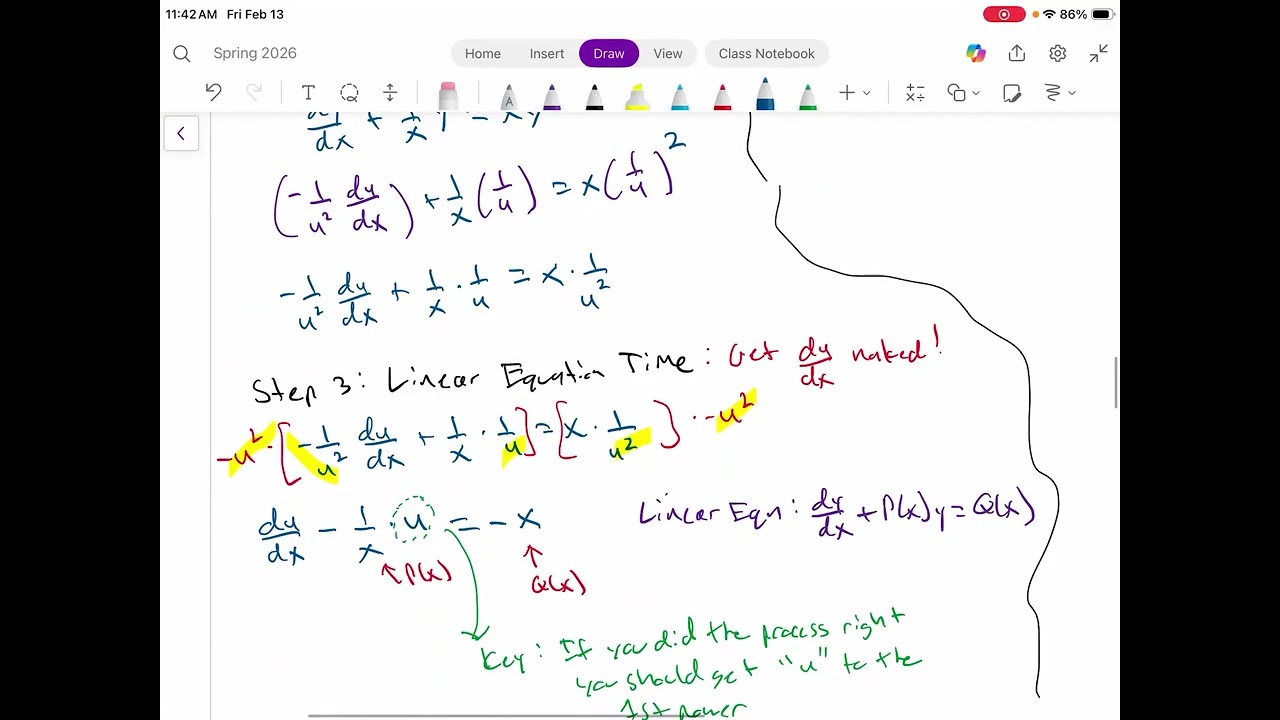 11:42 AM Fri Feb 13
86%
Spring 2026
Home Insert Draw View Class Notebook
dy/dx + 1/x y = xy
(-1/u² du/dx) + 1/x (1/u) = x(1/u)²
-1/u² du/dx + 1/x · 1/u = x · 1/u²
Step 3: Linear Equation Time: Get du/dx naked!
-u² · [-1/u² du/dx + 1/x · 1/u] = [x · 1/u²] · -u²
du/dx - 1/x · u = -x
Linear Eqn: dy/dx + P(x)y = Q(x)
↑P(x)
↑
Q(x)
Key: If you did the process right
you should get "u" to the
1st power